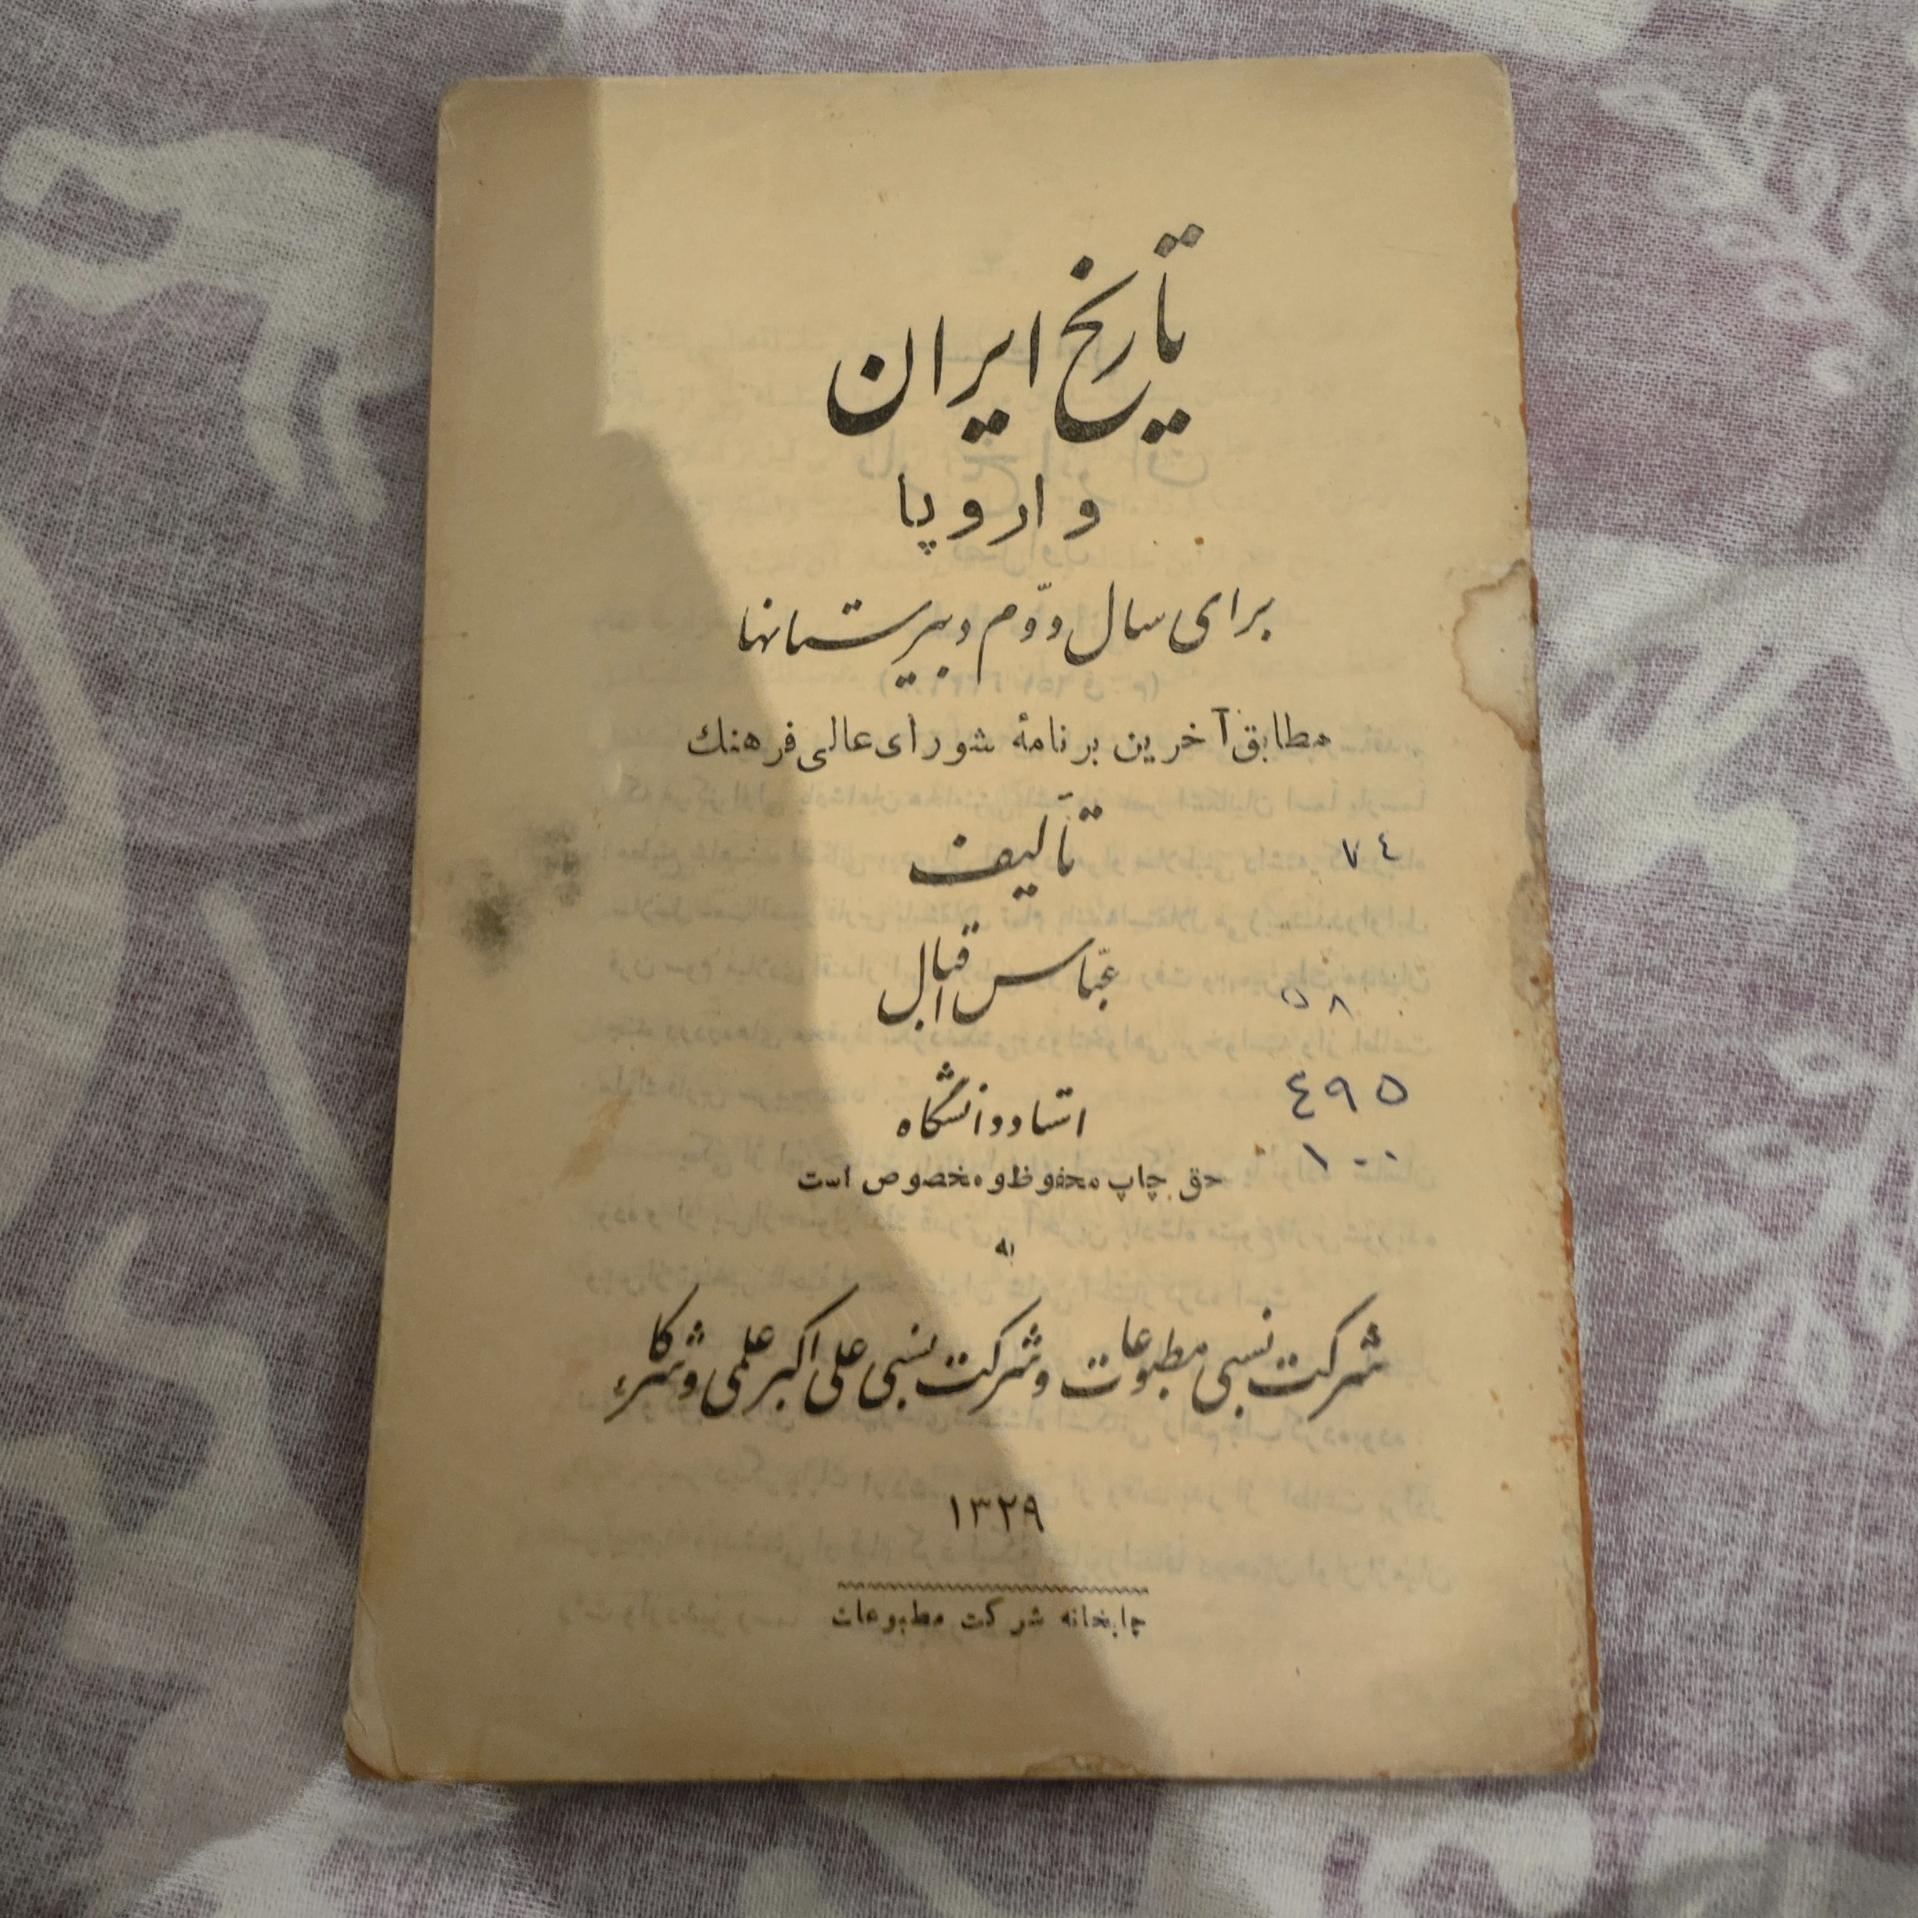 تاریخ ایران
و اروپا
برای سال دوّم دبیرستانها
مطابق آخرین برنامهٔ شورای عالی فرهنك
تألیف
٧٤
عبّاس اقبال
٥٨
استاد دانشگاه
٤٩٥
١٠٠
حق چاپ محفوظ و مخصوص است
به
شرکت نسبی مطبوعات و شرکت نسبی علی اکبر علمی و شرکاء
۱۳۲۹
چاپخانه شرکت مطبوعات